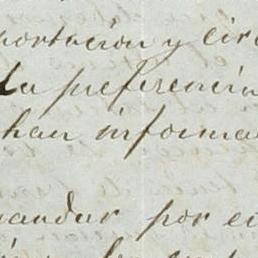 portación y circ
La preferencia
han informa
mandar por el